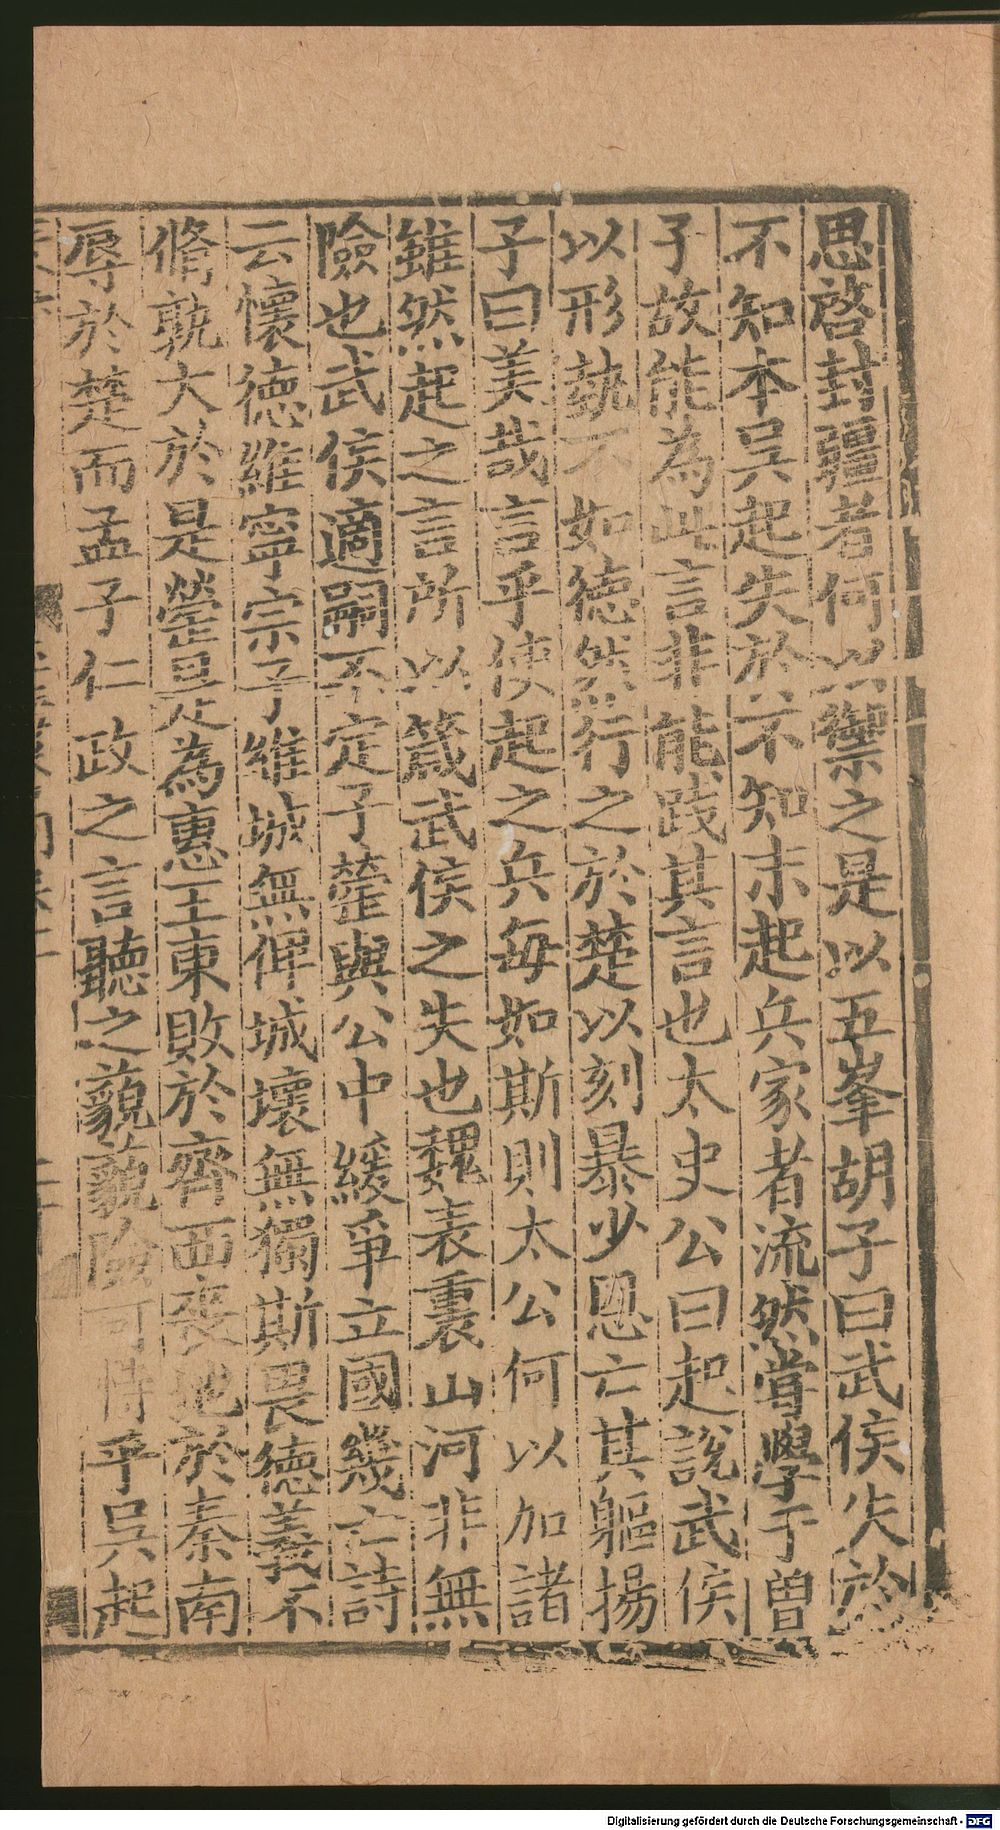 思啓封疆者何以禦之是以五峯胡子曰武侯失於
不知本吳起失於不知末起兵家者流然嘗學于曽
子故能為此言非能踐其言也太史公曰起說武侯
以形埶不如徳然行之於楚以刻暴少恩亡其軀揚
子曰美哉言乎使起之兵每如斯則太公何以加諸
雖然起之言所以箴武侯之失也魏表裏山河非無
險也武侯適嗣不定子罃與公中緩爭立國幾亡詩
云懷德維寧宗子維城無俾城壞無獨斯畏徳義不
脩孰大於是罃是為惠王東敗於齊西喪地於秦南
辱於楚而孟子仁政之言聽之藐藐險可恃乎吳起
Digitalisierung gefördert durch die Deutsche Forschungsgemeinschaft - DFG